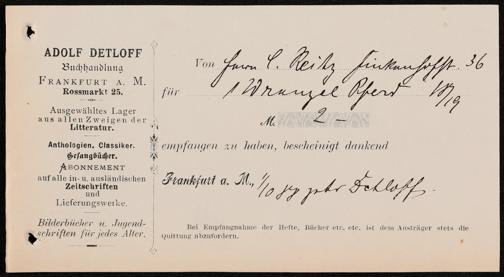 ADOLF DETLOFF
Buchhandlung
FRANKFURT A. M.
Rossmarkt 25.
Ausgewähltes Lager
aus allen Zweigen der
Litteratur.
Anthologien, Classiker.
Gesangbücher.
ABONNEMENT
auf alle in- u. ausländischen
Zeitschriften
und
Lieferungswerke.
Bilderbücher u. Jugend-
schriften für jedes Alter.
Von Herrn C. Reitz Finkenhofst. 36
für 1 Wrangel Pferd 18/19
M. 2 –
empfangen zu haben, bescheinigt dankend
Frankfurt a. M., Detloff.
Bei Empfangnahme der Hefte, Bücher etc. etc. ist dem Austräger stets die
Quittung abzufordern.